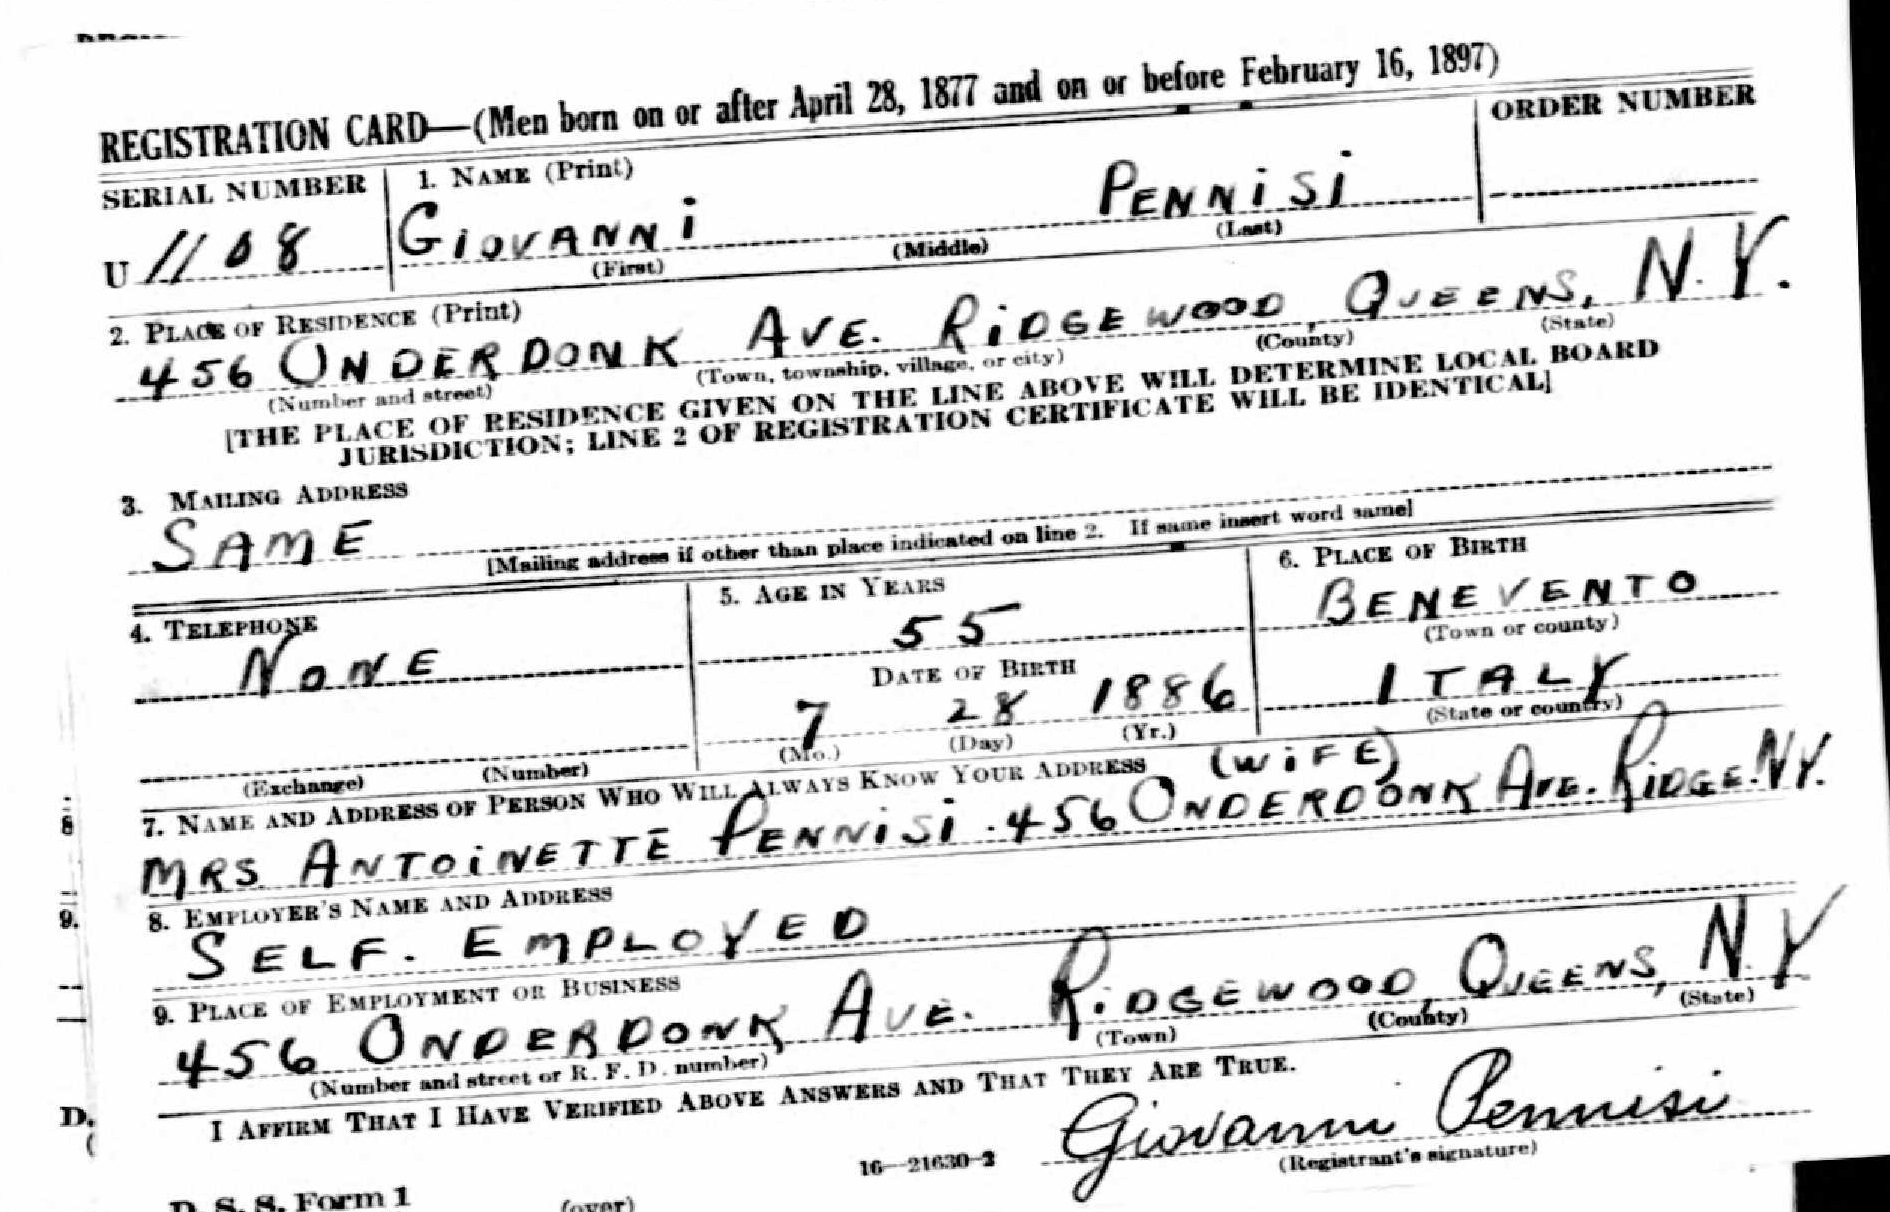 REGISTRATION CARD—(Men born on or after April 28, 1877 and on or before February 16, 1897)
SERIAL NUMBER
1. NAME (Print)
ORDER NUMBER
U 1108
GIOVANNI PENNISI
(First) (Middle) (Last)
2. PLACE OF RESIDENCE (Print)
456 ONDERDONK AVE. RIDGEWOOD, QUEENS, N.Y.
(Number and street) (Town, township, village, or city) (County) (State)
[THE PLACE OF RESIDENCE GIVEN ON THE LINE ABOVE WILL DETERMINE LOCAL BOARD
JURISDICTION; LINE 2 OF REGISTRATION CERTIFICATE WILL BE IDENTICAL]
3. MAILING ADDRESS
SAME
[Mailing address if other than place indicated on line 2. If same insert word same]
4. TELEPHONE
NONE
(Exchange) (Number)
5. AGE IN YEARS
55
DATE OF BIRTH
7 28 1886
(Mo.) (Day) (Yr.)
6. PLACE OF BIRTH
BENEVENTO
(Town or county)
ITALY
(State or country)
7. NAME AND ADDRESS OF PERSON WHO WILL ALWAYS KNOW YOUR ADDRESS (WIFE)
MRS. ANTOINETTE PENNISI. 456 ONDERDONK AVE. RIDGE. N.Y.
8. EMPLOYER'S NAME AND ADDRESS
SELF. EMPLOYED
9. PLACE OF EMPLOYMENT OR BUSINESS
456 ONDERDONK AVE. RIDGEWOOD, QUEENS, N.Y
(Number and street or R. F. D. number) (Town) (County) (State)
I AFFIRM THAT I HAVE VERIFIED ABOVE ANSWERS AND THAT THEY ARE TRUE.
Giovanni Pennisi
(Registrant's signature)
D. S. S. Form 1
(over)
16—21630-2
8
9.
D.
(